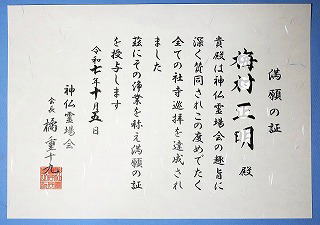 満願の証
梅村正明 殿
貴殿は神仏霊場会の趣旨に
深く賛同されこの度めでたく
全ての社寺巡拝を達成され
ました
茲にその浄業を称え満願の証
を授与します
令和七年十月五日
神仏霊場会
会長 橘重十九